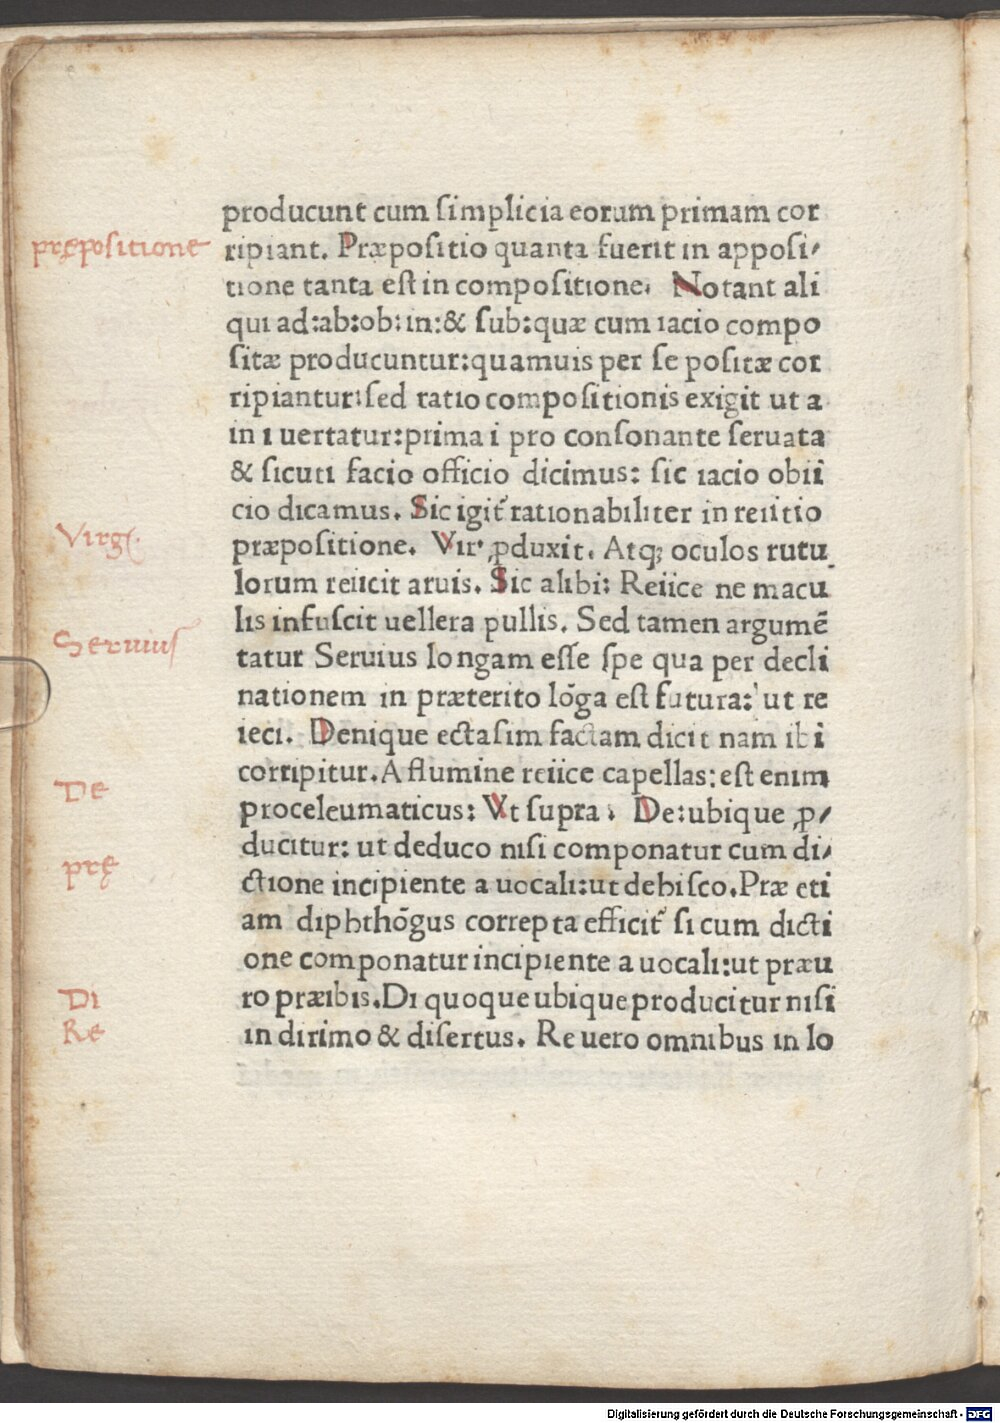 producunt cum ſimplicia eorum primam cor
prępositione
ripiant. Præpoſitio quanta fuerit in appoſi/
tione tanta eſt in compoſitione. Notant ali
qui ad:ab:ob:in:& ſub:quæ cum iacio compo
ſitæ producuntur:quamuis per ſe poſitæ cor
ripiantur:ſed ratio compoſitionis exigit ut a
in i uertatur:prima i pro conſonante ſeruata
& ſicuti facio officio dicimus: ſic iacio obii
cio dicamus. Sic igit᷑ rationabiliter in reiitio
Virg.
præpoſitione. Vir. ꝓduxit. Atq; oculos rutu
lorum reiicit aruis. Sic alibi: Reiice ne macu
lis infuſcit uellera pullis. Sed tamen argumē
Seruius
tatur Seruius longam eſſe ſpe qua per decli
nationem in præterito lōga eſt futura: ut re
ieci. Denique ectaſim factam dicit nam ibi
corripitur. A flumine reiice capellas: eſt enim
De
proceleumaticus: Vt ſupra. De:ubique ꝓ/
ducitur: ut deduco niſi componatur cum di/
prę
ctione incipiente a uocali:ut dehiſco. Præ eti
am diphthōgus correpta efficit᷑ ſi cum dicti
one componatur incipiente a uocali:ut præu
Di
ro præibis. Di quoque ubique producitur niſi
Re
in dirimo & diſertus. Re uero omnibus in lo
Digitalisierung gefördert durch die Deutsche Forschungsgemeinschaft - DFG